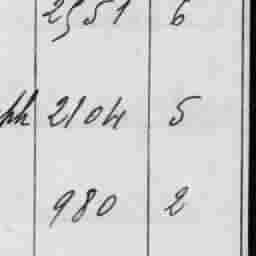 2551 6
ph 2104 5
980 2